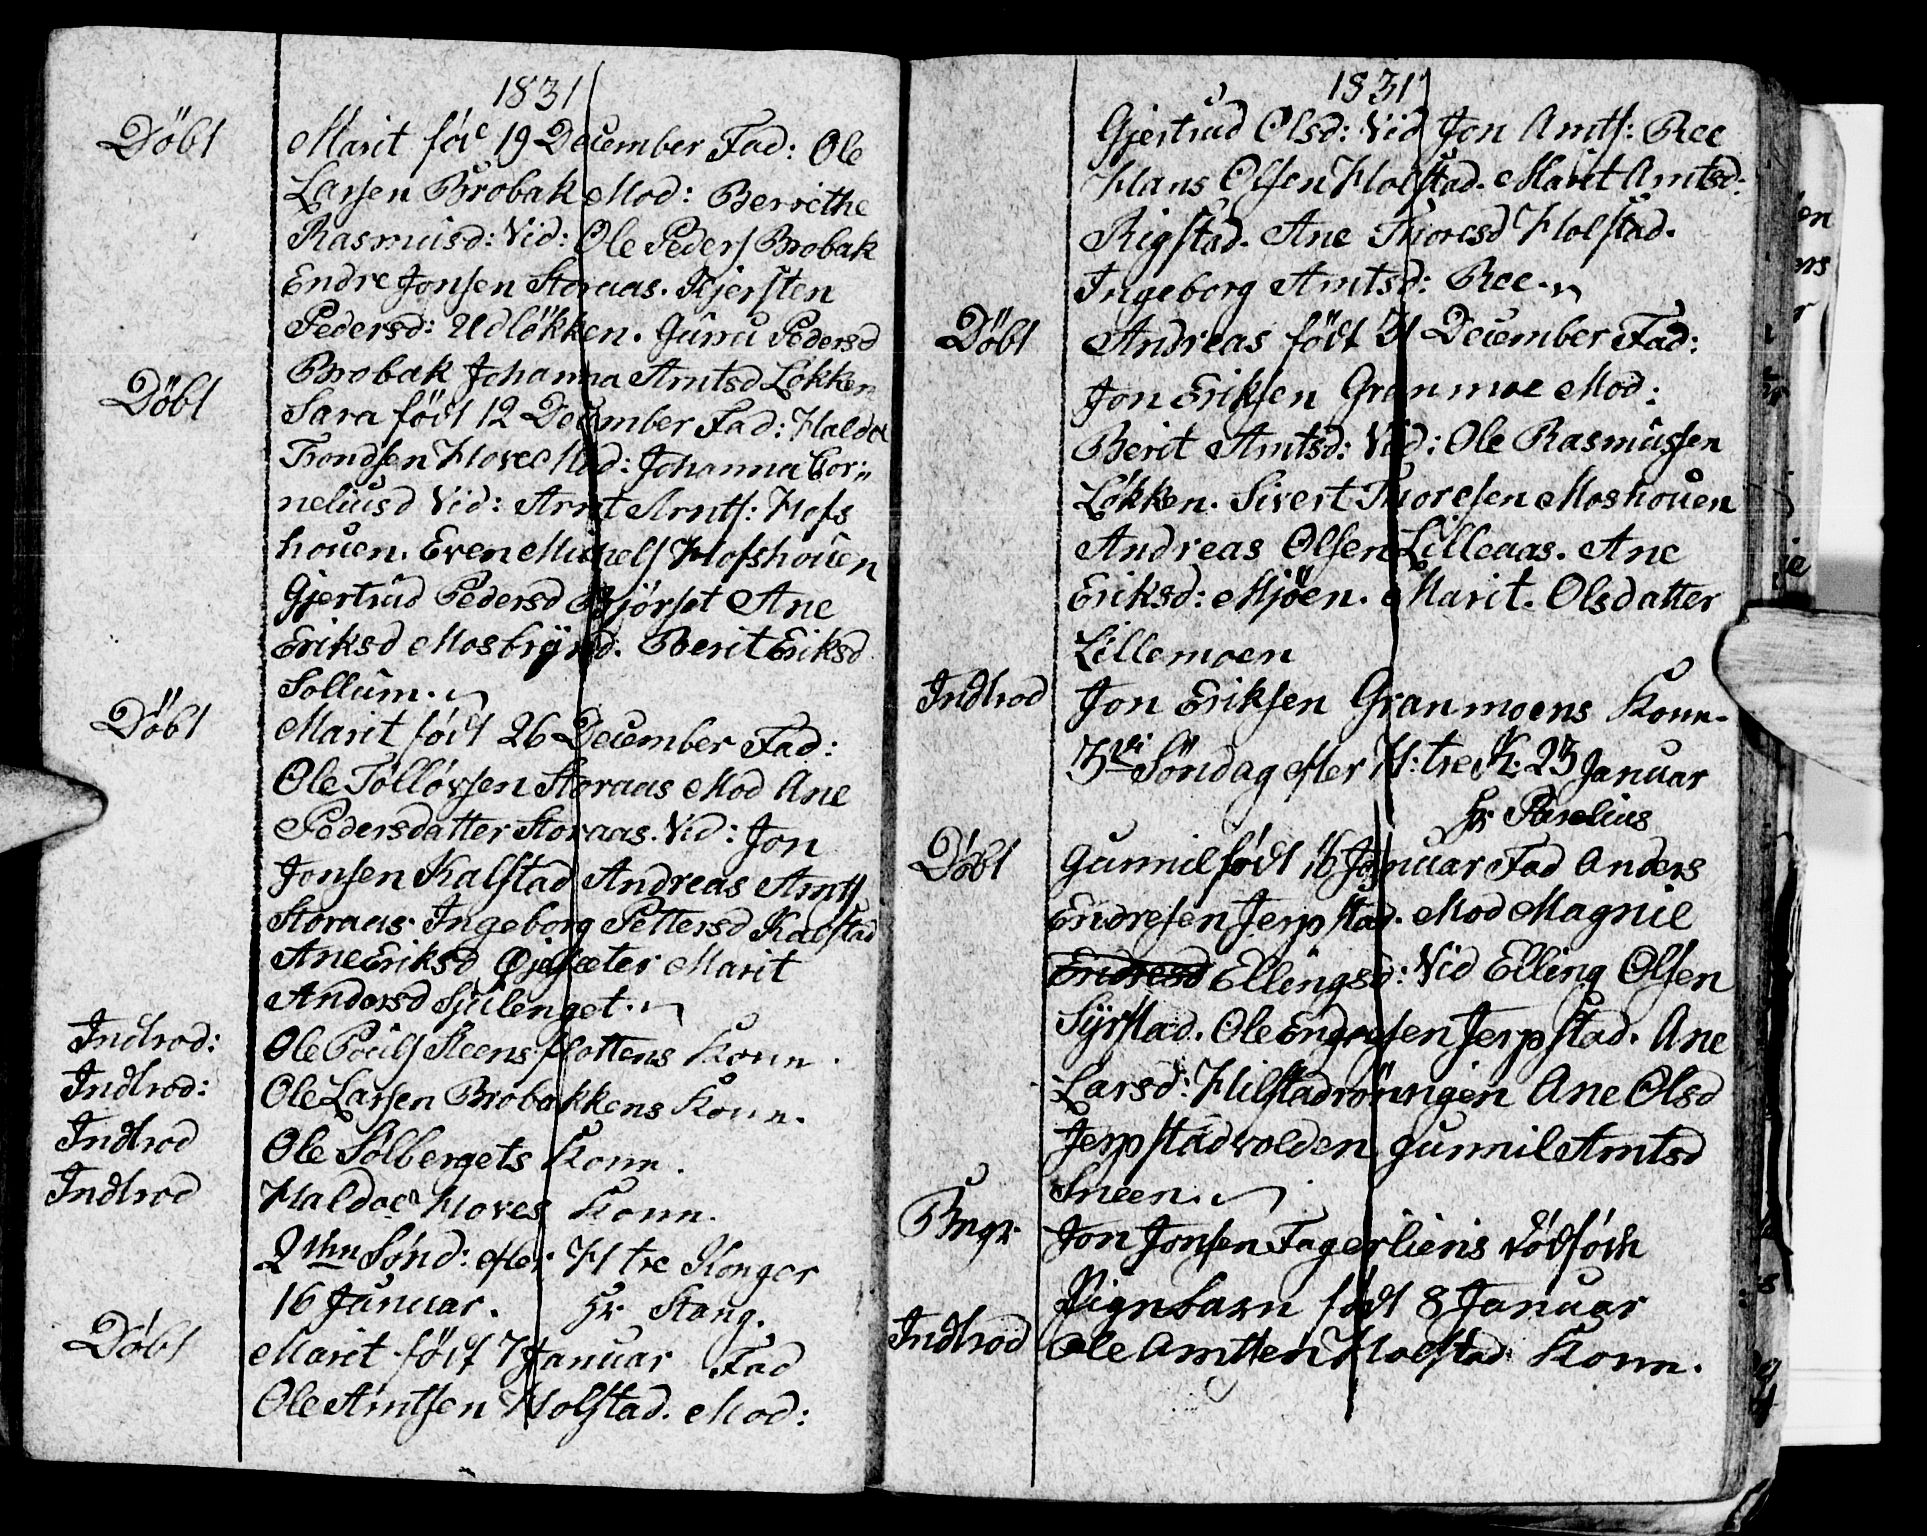 1831
Döbt Marit föd 19 December Fad: Ole
Larsen Brobak Mod: Berrethe
Rasmusd: Vid: Ole Peders Brobak
Endre Jonsen Storaas. Kjersten
Pedersd: Udlökken. Gurru Pedersd
Brobak Johanna Arntsd Løkken
Döbt Sara födt 12 December Fad: Haldo
Trondsen Hove Mod: Johanna Cor„
neliusd Vid: Arnt Arnts: Hofs
houen. Even Mikkels Hofshouen
Gjertrud Pedersd Bjørset Ane
Eriksd Mosbrynd. Berit Eriksd
Sollum.
Döbt Marit födt 26 December Fad:
Ole Tollövsen Storaas Mod Ane
Pedersdatter Storaas. Vid: Jon
Jonsen Kalstad Andreas Arnts
Storaas. Ingeborg Pettersd Kalstad
Ane Eriksd Øjesæter Marit
Andersd Sjulenget.
Indlrod: Ole Pouls Steensflottens Konn.
Indlrod: Ole Larsen Brobakkens Konn.
Indlrod Ole Solbergets Konn.
Indlrod Haldoe Hoves Konn.
2den Sönd: efter H tre Konger
16 Januar. Hr Stang.
Döbt Marit födt 7 Januar Fad
Ole Arntsen Holstad. Mod:
1831
Gjertrud Olsd: Vid Jon Arnts: Ree
Hans Olsen Holstad. Marit Arntsd:
Rigstad. Ane Thoresd Holstad.
Ingeborg Arntsd: Ree.
Döbt Andreas födt 31 December Fad:
Jon Eriksen Granmoe Mod:
Berit Arntsd: Vid: Ole Rasmussen
Løkken. Sivert Thoresen Moshouen
Andreas Olsen Lilleaas. Ane
Eriksd: Mjöen. Marit. Olsdatter
Lillemoen
Indlrod Jon Eriksen Granmoens Konn.
3di Söndag efter H: tre K: 23 Januar
Hr Parelius
Döbt Gunnil födt 16 Januar Fad Anders
Endresen Jerpstad. Mod Magnil
Endresd Ellingsd: Vid Elling Olsen
Syrstad. Ole Endresen Jerpstad. Ane
Larsd: Hilstadrönningen Ane Olsd
Jerpstadvolden Gunnil Arntsd
Sneen.
Jon Jonsen Fagerliens dödfödt
Pigebarn födt 8 Januar
Indlrod Ole Arntsen Holstad Konn.